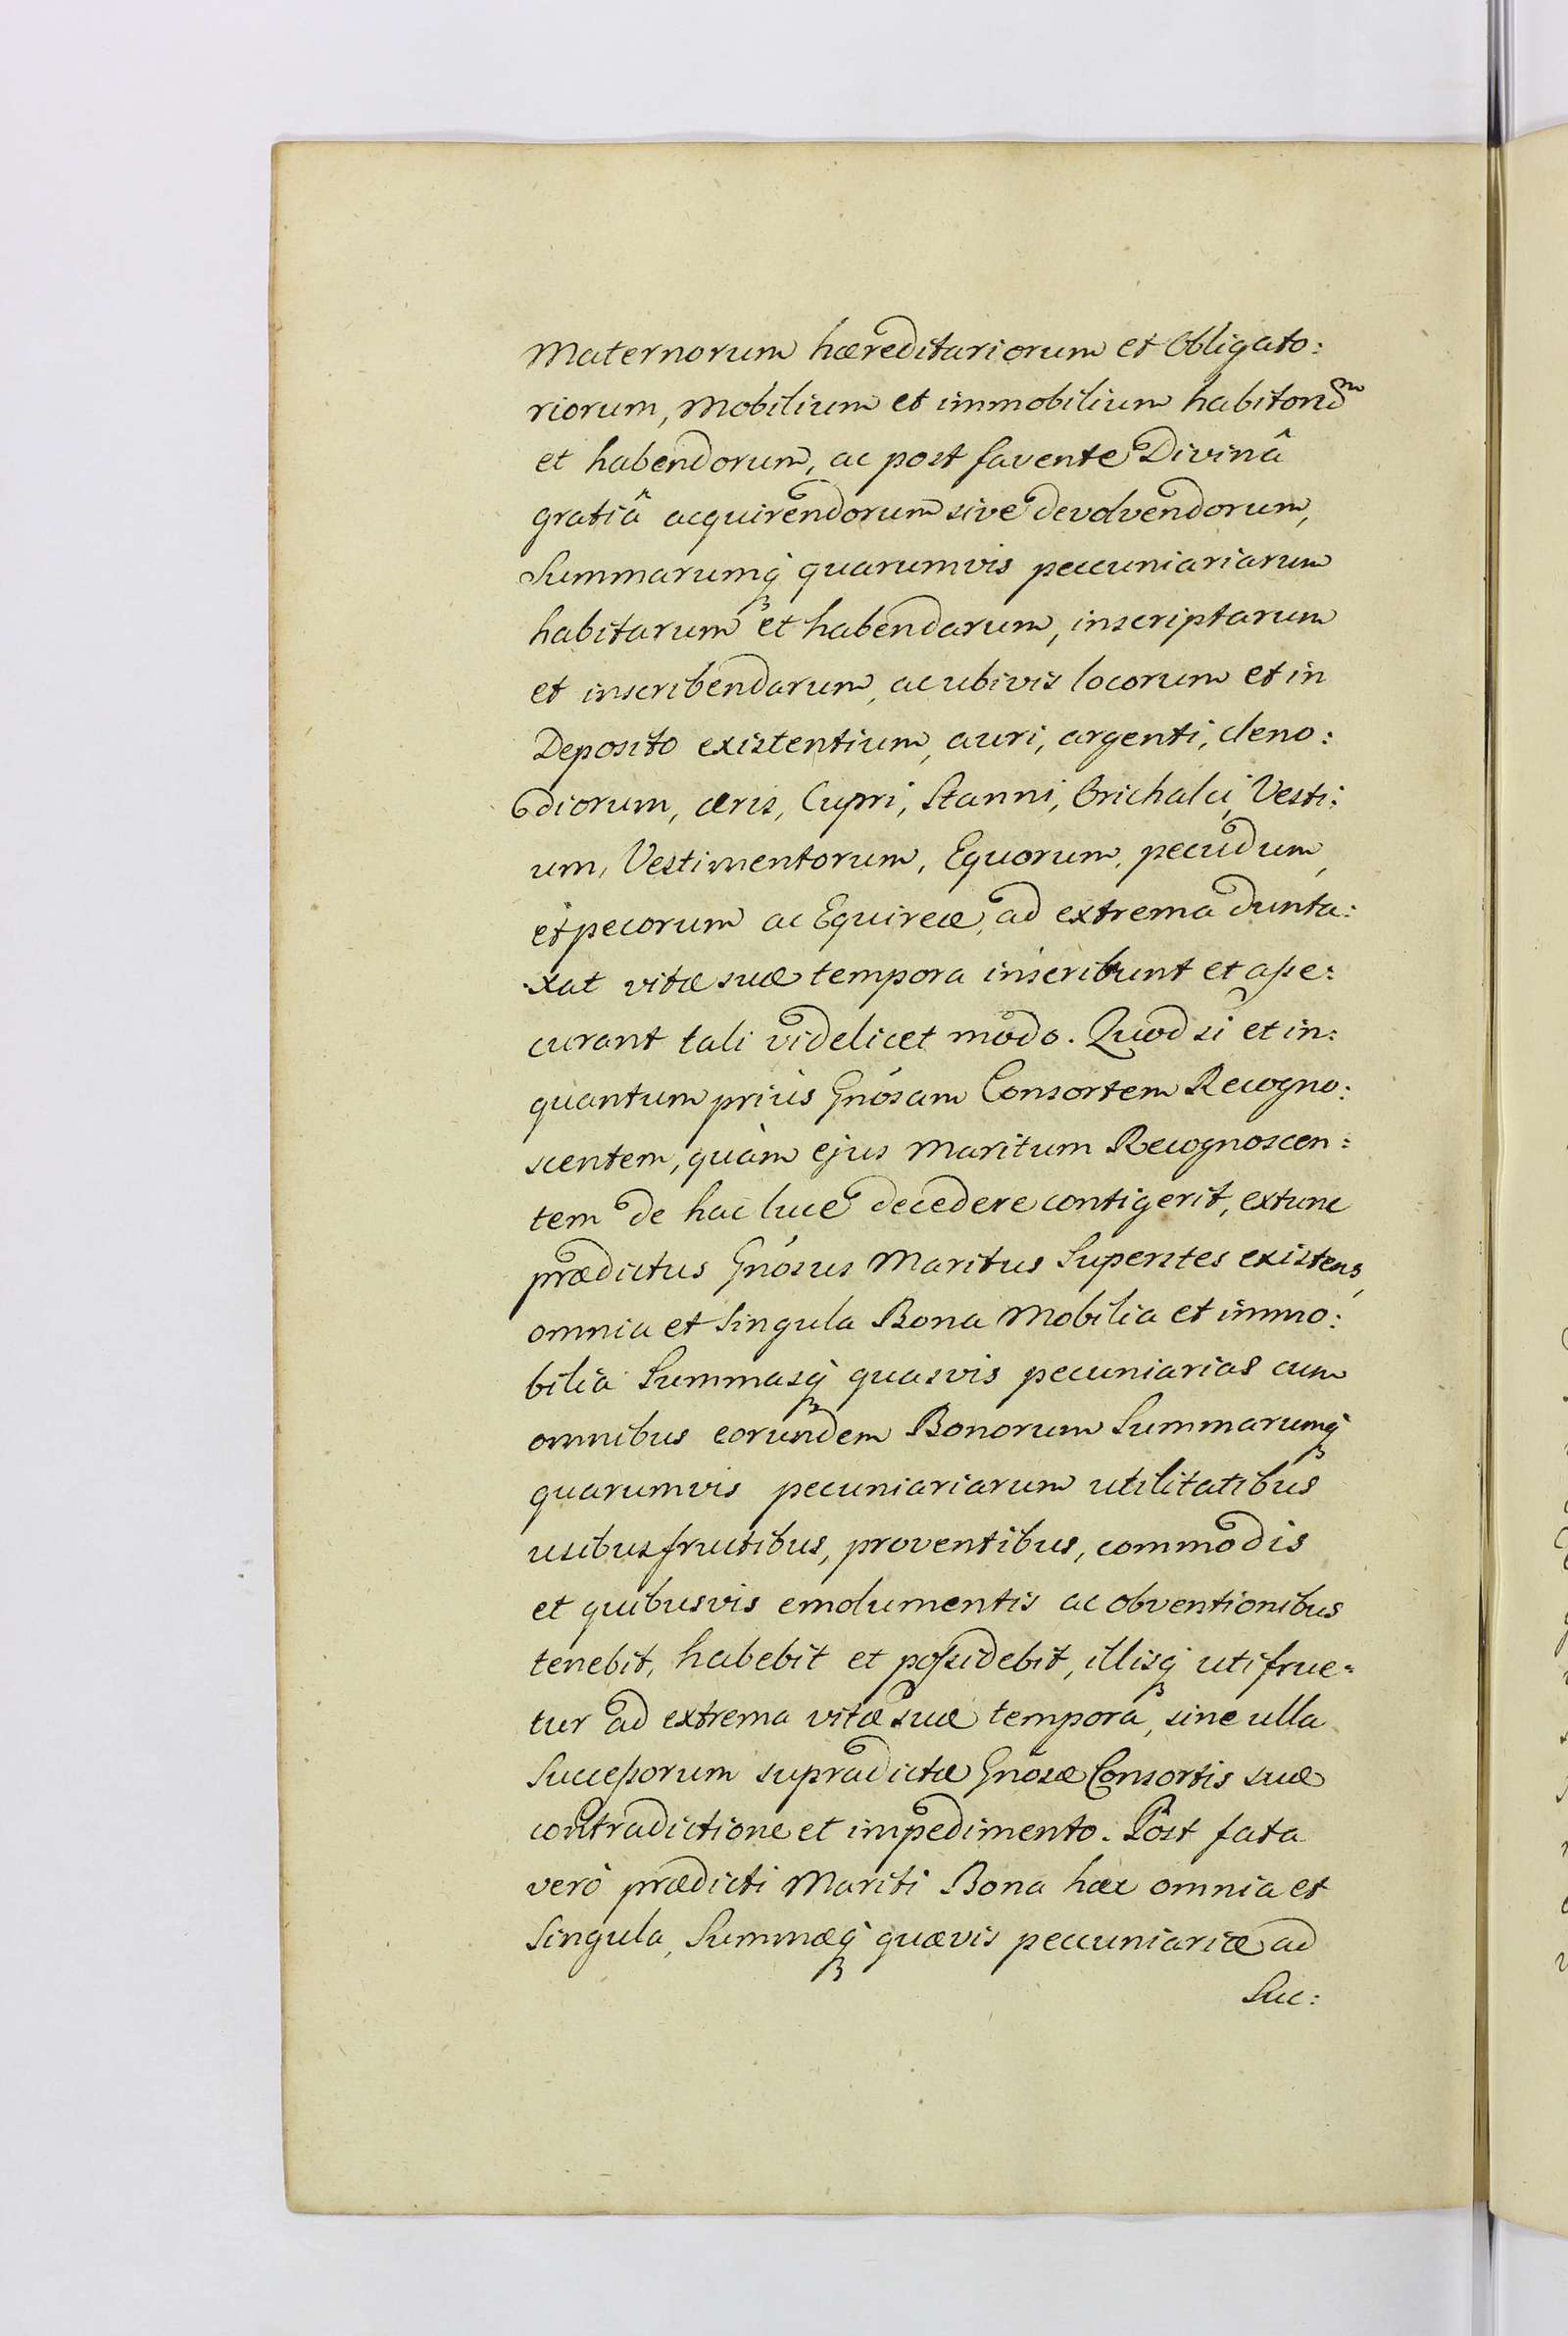 Maternorum hæreditariorum et Obligato:
riorum, Mobilium et immobilium habitorũ
et habendorum, ac post favente Divinâ
gratiâ acquirendorum sive devolvendorum,
Summarumq́ꝫ quarumvis peccuniariarum
habitarum et habendarum, inscriptarum
et inscribendarum, ac ubivis locorum et in
Deposito existentium, auri, argenti, cleno:
diorum, æris, Cupri, Stanni, Orichalci, Vesti:
um, Vestimentorum, Equorum, pecudum,
et pecorum ac Equireæ, ad extrema dunta:
xat vitæ suæ tempora inscribunt et aße:
curant tali videlicet modo. Quod si et in:
quantum priùs Gnósam Consortem Recogno:
scentem, quàm ejus Maritum Recognoscen:
tem de hac luce decedere contigerit, extunc
prædictus Gnósus Maritus Superstes existens,
omnia et Singula Bona Mobilia et immo:
bilia Summasq́ꝫ quasvis pecuniarias cum
omnibus eorundem Bonorum Summarumq́ꝫ
quarumvis pecuniariarum utilitatibus
usibusfructibus, proventibus, commodis
et quibusvis emolumentis ac obventionibus
tenebit, habebit et poßidebit, illisq́ꝫ utifrue:
tur ad extrema vitæ suæ tempora, sine ulla
Succeßorum supradictæ Gnósæ Consortis suæ
contradictione et impedimento. Post fata
verò prædicti Mariti Bona hæc omnia et
Singula, Summæq́ꝫ quævis peccuniariæ ad
Suc: